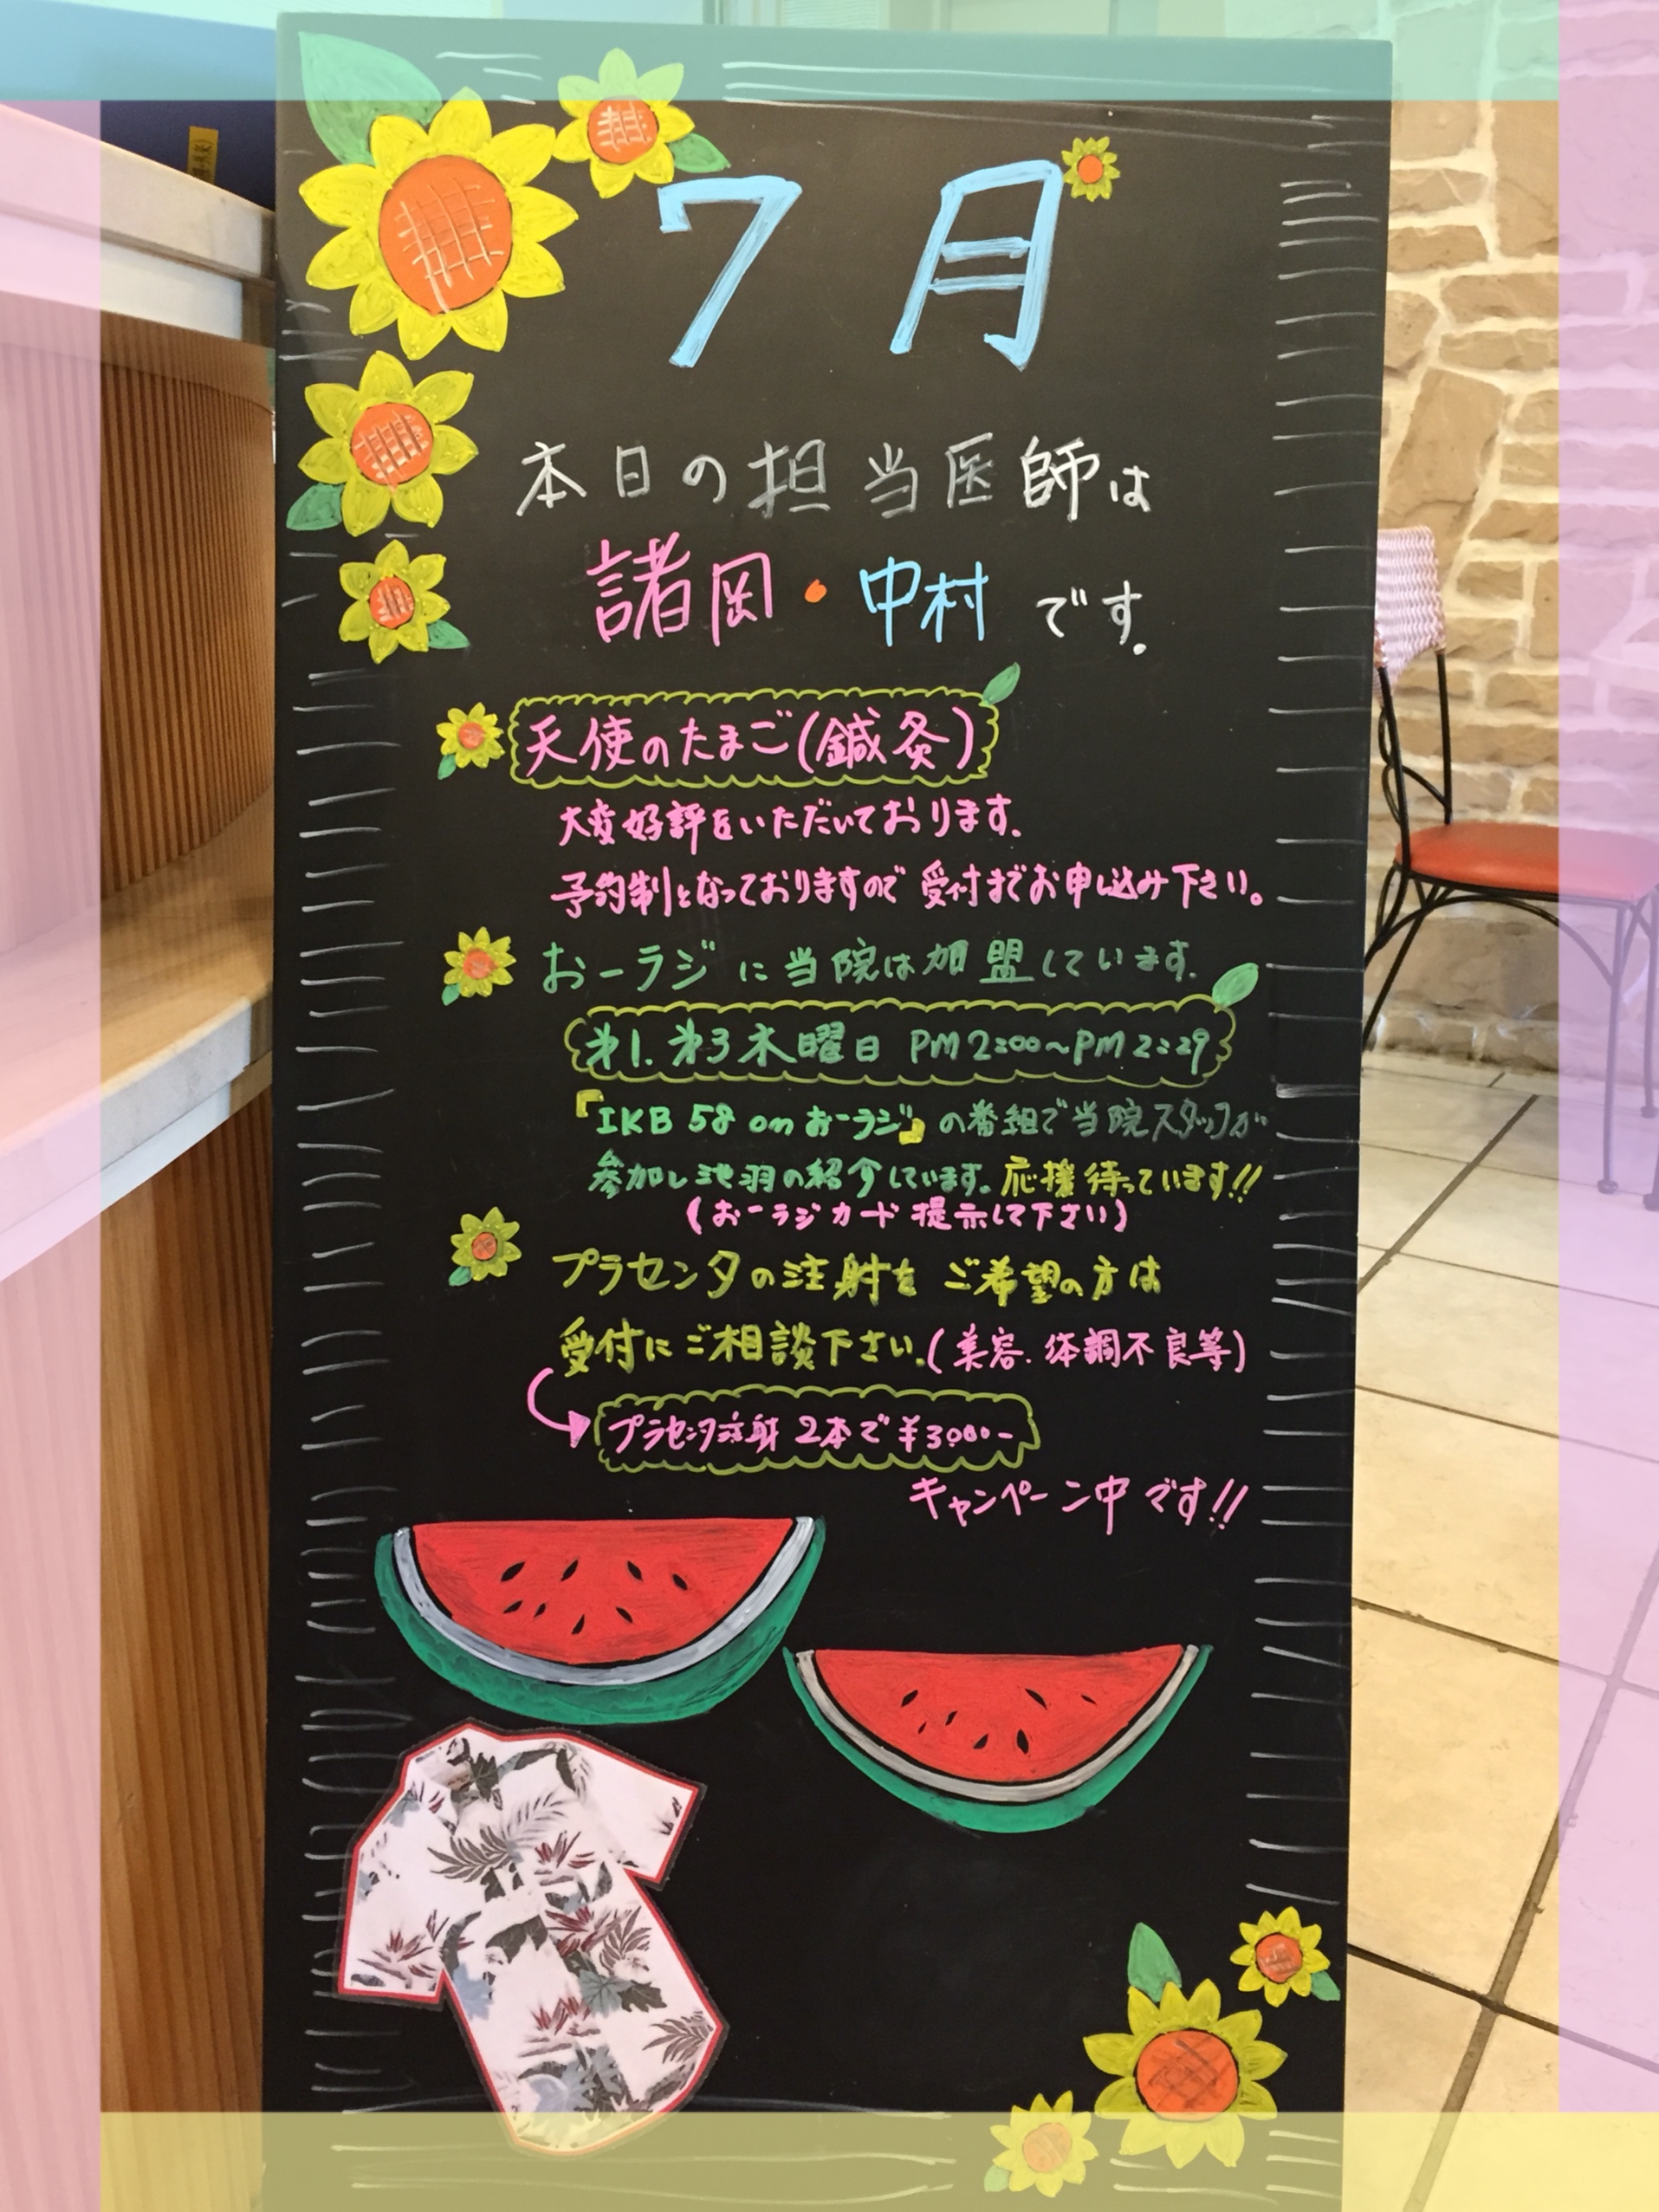 7月
本日の担当医師は
諸岡・中村です。
天使のたまご(鍼灸)
大変好評をいただいております。
予約制となっておりますので受付までお申し込み下さい。
おーラジに当院は加盟しています。
第1.第3木曜日 PM2:00~PM2:29
『IKB 58 on おーラジ』の番組で当院スタッフが
参加し池羽の紹介しています。応援待っています!!
(おーラジカード提示して下さい)
プラセンタの注射をご希望の方は
受付にご相談下さい。(美容.体調不良等)
プラセンタ注射 2本で¥3000-
キャンペーン中です!!